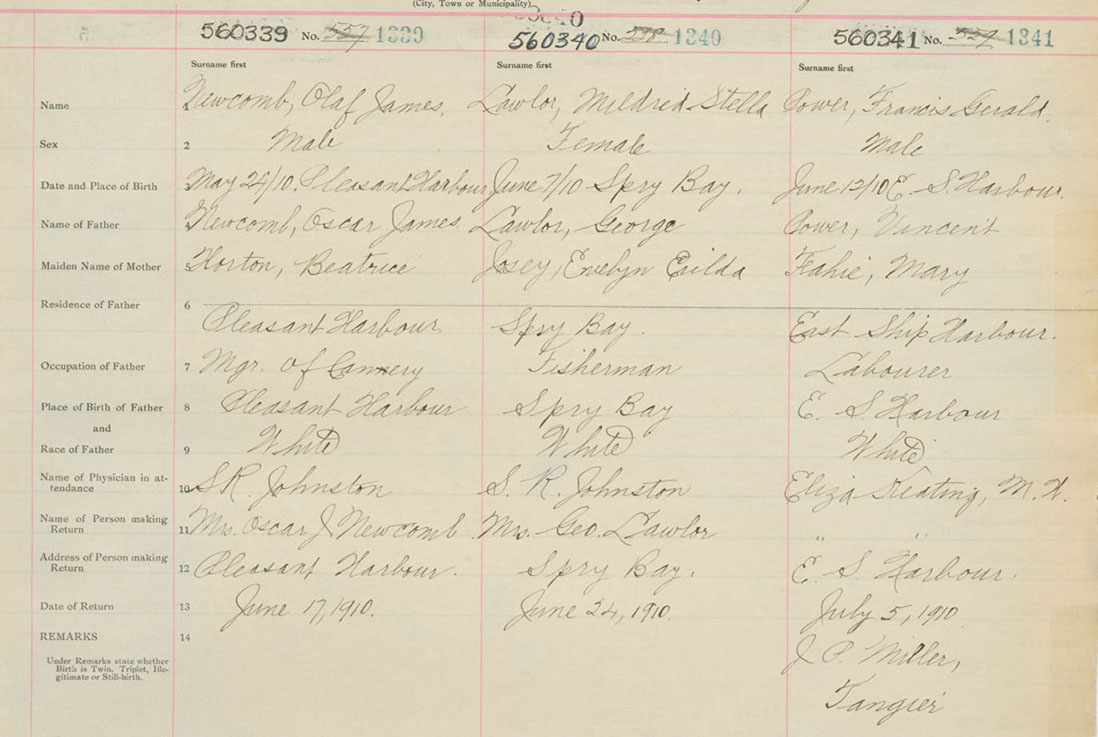 (City, Town or Municipality)
560339 No. 557 1339 560340 No. 558 1340 560341 No. 559 1341
Surname first Surname first Surname first
Name 1 Newcomb, Olaf James. Lawlor, Mildred Stella Power, Francis Gerald.
Sex 2 Male Female Male
Date and Place of Birth May 24/10. Pleasant Harbour June 7/10 Spry Bay. June 12/10 E. S. Harbour.
Name of Father Newcomb, Oscar James. Lawlor, George Power, Vincent
Maiden Name of Mother 5 Horton, Beatrice Josey, Evelyn Esilda Fahie, Mary
Residence of Father 6
Pleasant Harbour Spry Bay. East Ship Harbour.
Occupation of Father 7 Mgr. of Cannery Fisherman Labourer
Place of Birth of Father 8 Pleasant Harbour Spry Bay E. S. Harbour
and
Race of Father 9 White White White
Name of Physician in at-
tendance 10 S R. Johnston S. R. Johnston Eliza Keating, M. W.
Name of Person making
Return 11 Mrs. Oscar J Newcomb Mrs. Geo. Lawlor " "
Address of Person making
Return 12 Pleasant Harbour. Spry Bay. E. S. Harbour.
Date of Return 13 June 17, 1910. June 24, 1910. July 5, 1910
REMARKS 14
Under Remarks state whether
Birth is Twin, Triplet, Ille-
gitimate or Still-birth.
J P. Miller,
Tangier